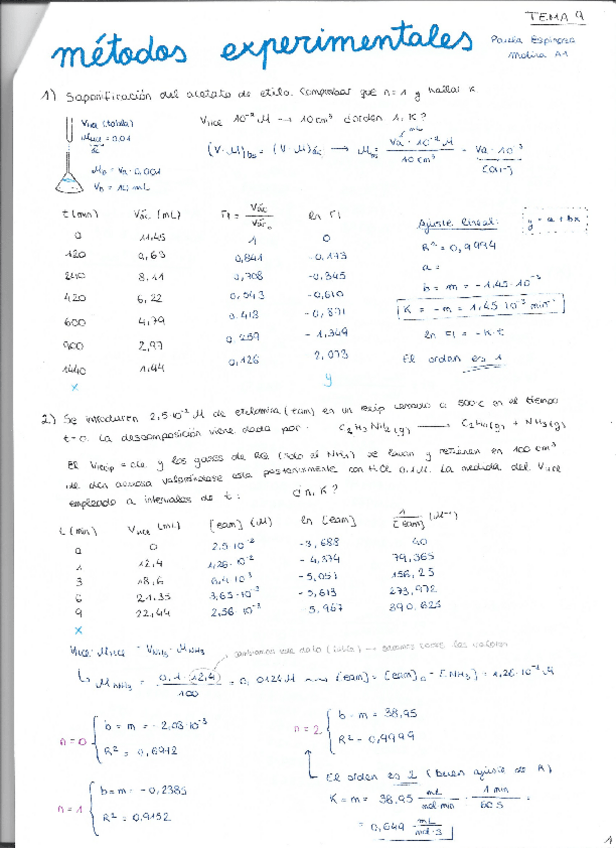 TEMA 9
métodos experimentales
Paula Espinosa
Molina A1
1) Saponificación del acetato de etilo. Comprobar que n=1 y hallar K
VHCE 10⁻² M → 10 cm³ ¿orden 1, K?
t (min) Vác (mL) rt = Vác / Vác₀ ln rt
0 11,45 1 0
120 9,63 0,841 -0,173
240 8,11 0,708 -0,345
420 6,22 0,543 -0,610
600 4,79 0,418 -0,871
900 2,97 0,259 -1,349
1440 1,44 0,126 2,073
x y
Ajuste lineal: y = a + bx
R² = 0,9994
a =
b = m = -1,45·10⁻³
K = -m = 1,45·10⁻³ min⁻¹
ln rt = -K·t
El orden es 1
2) Se introducen 2,5·10⁻² M de etilamina (eam) en un recip cerrado a 500°C en el tiempo
t=0. La descomposición viene dada por: C₂H₅NH₂(g) → C₂H₄(g) + NH₃(g)
El Vrecip = cte. y los gases de RQ (solo el NH₃) se lavan y retienen en 100 cm³
de dón acuosa valorándose esta posteriormente con HCl 0,1M. La medida del VHCE
empleado a intervalos de t: ¿n, K?
t (min) VHCE (mL) [eam] (M) ln [eam] 1/[eam] (M⁻¹)
0 0 2,5·10⁻² -3,688 40
1 12,4 1,26·10⁻² -4,374 79,365
3 18,6 6,4·10⁻³ -5,051 156,25
6 21,35 3,65·10⁻³ -5,613 273,972
9 22,44 2,56·10⁻³ -5,967 390,625
x
VHCE·MHCE = VNH₃·MNH₃
MNH₃ = 0,1·(12,4) / 100 = 0,0124 M → [eam] = [eam]₀ - [NH₃] = 1,26·10⁻² M
n=0 { b = m = -2,03·10⁻³
R² = 0,6912
n=1 { b = m = -0,2385
R² = 0,9152
n=2 { b = m = 38,95
R² = 0,9999
El orden es 2 (buen ajuste de R)
K = m = 38,95 mL/mol min · 1 min/60 s =
= 0,649 mL/mol·s
1